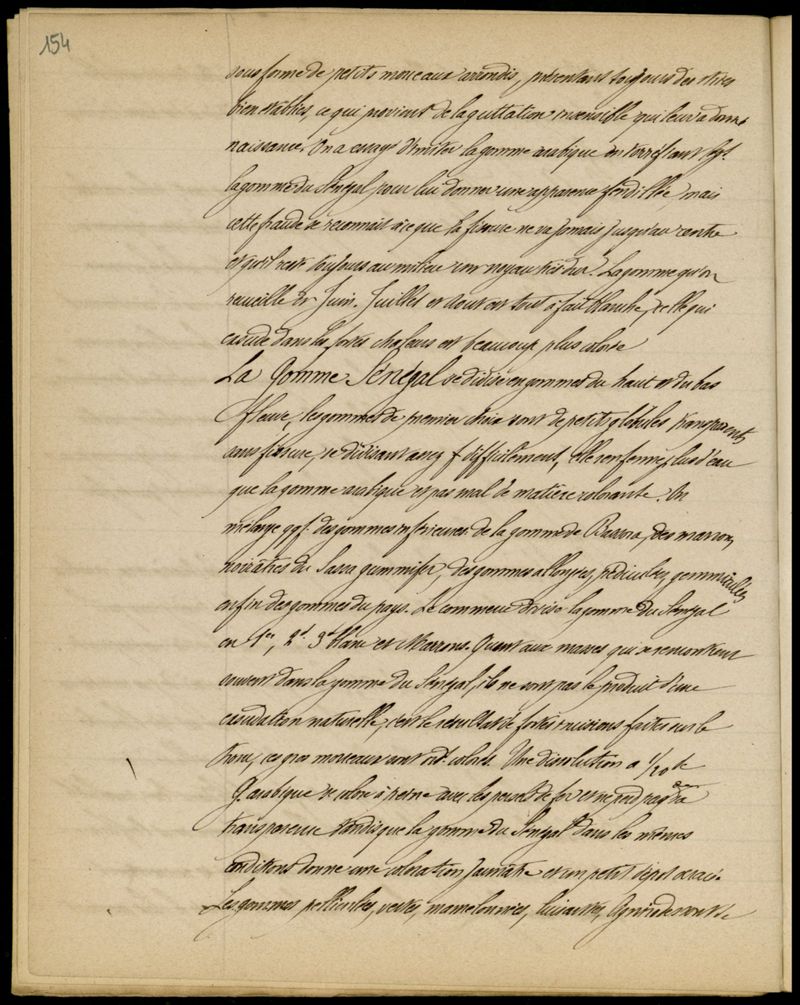 154
sous forme de petits morceaux arrondis, présentant toujours des stries
bien établies, ce qui provient de la guttation insensible qui leur a donné
naissance. On a essayé d'imiter la gomme arabique en torréfiant qqf.
la gomme du Sénégal pour lui donner une apparence fendillée mais
cette fraude se reconnait à ce que la fissure ne va jamais jusqu'au centre
et qu'il reste toujours au milieu un noyau très dur. La gomme qu'on
recueille en Juin, Juillet et Aout est tout à fait blanche, celle qui
exsude dans les fortes chaleurs est beaucoup plus colorée
La Gomme Sénégal se divise en gommes du haut et du bas
fleuve, les gommes de premier choix sont de petits globules transparents
sans fissure, se divisant assez difficilement, elle renferme plus d'eau
que la gomme arabique et pas mal de matière colorante. On
mélange qqf. des gommes inférieures de la gomme de Bassora, des marrons
noirâtres du Sassa gummifer, des gommes allongées, pédiculées,
enfin des gommes du pays. Le commerce divise la gomme du Sénégal
en 1er, 2d 3e blanc et Marrons. Quant aux masses qui se rencontrent
souvent dans la gomme du Sénégal, ils ne sont pas le produit d'une
exsudation naturelle, c'est le résultat de fortes incisions faites sur le
tronc, ces gros morceaux sont ord. colorés. Une dissolution a 1/20 de
G. arabique se colore à peine avec les persels de fer et ne perd pas sa
transparence tandis que la gomme du Sénégal dans les mêmes
conditions donne une coloration jaunâtre et un petit dépot
Les gommes pelliculées, vertes, mamelonnées, luisantes,